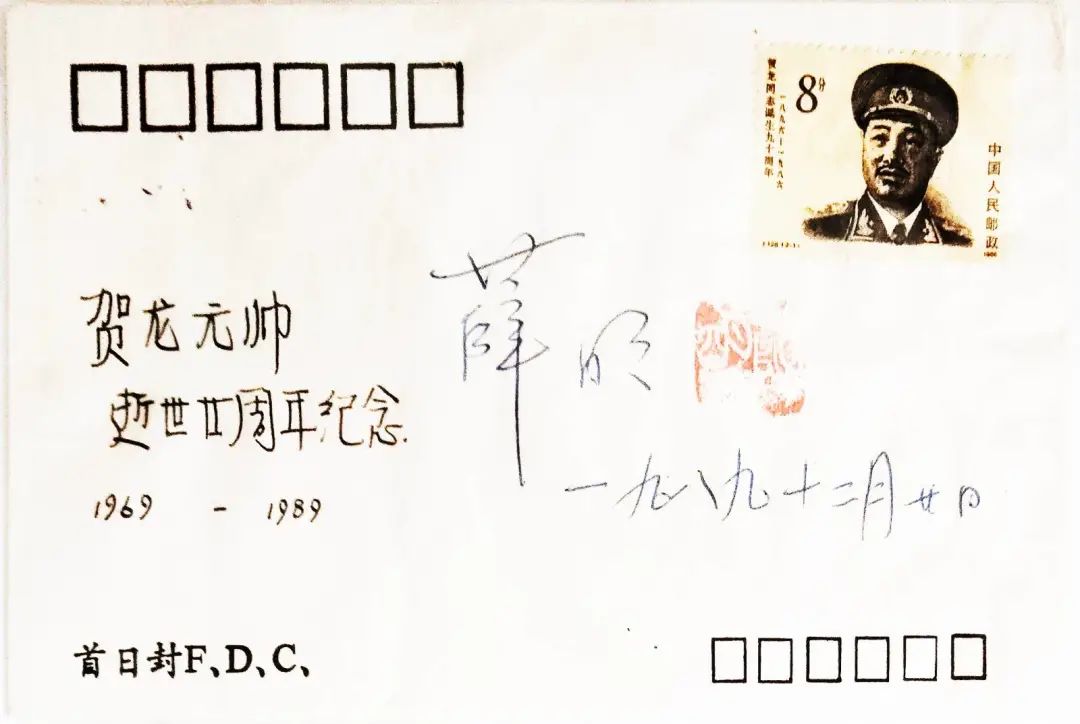 贺龙同志诞生九十周年
一八九六—一九八六
8分
中国人民邮政
1986
贺龙元帅
逝世廿周年纪念.
1969 - 1989
薛明
一九八九十二月廿日
首日封F、D、C、